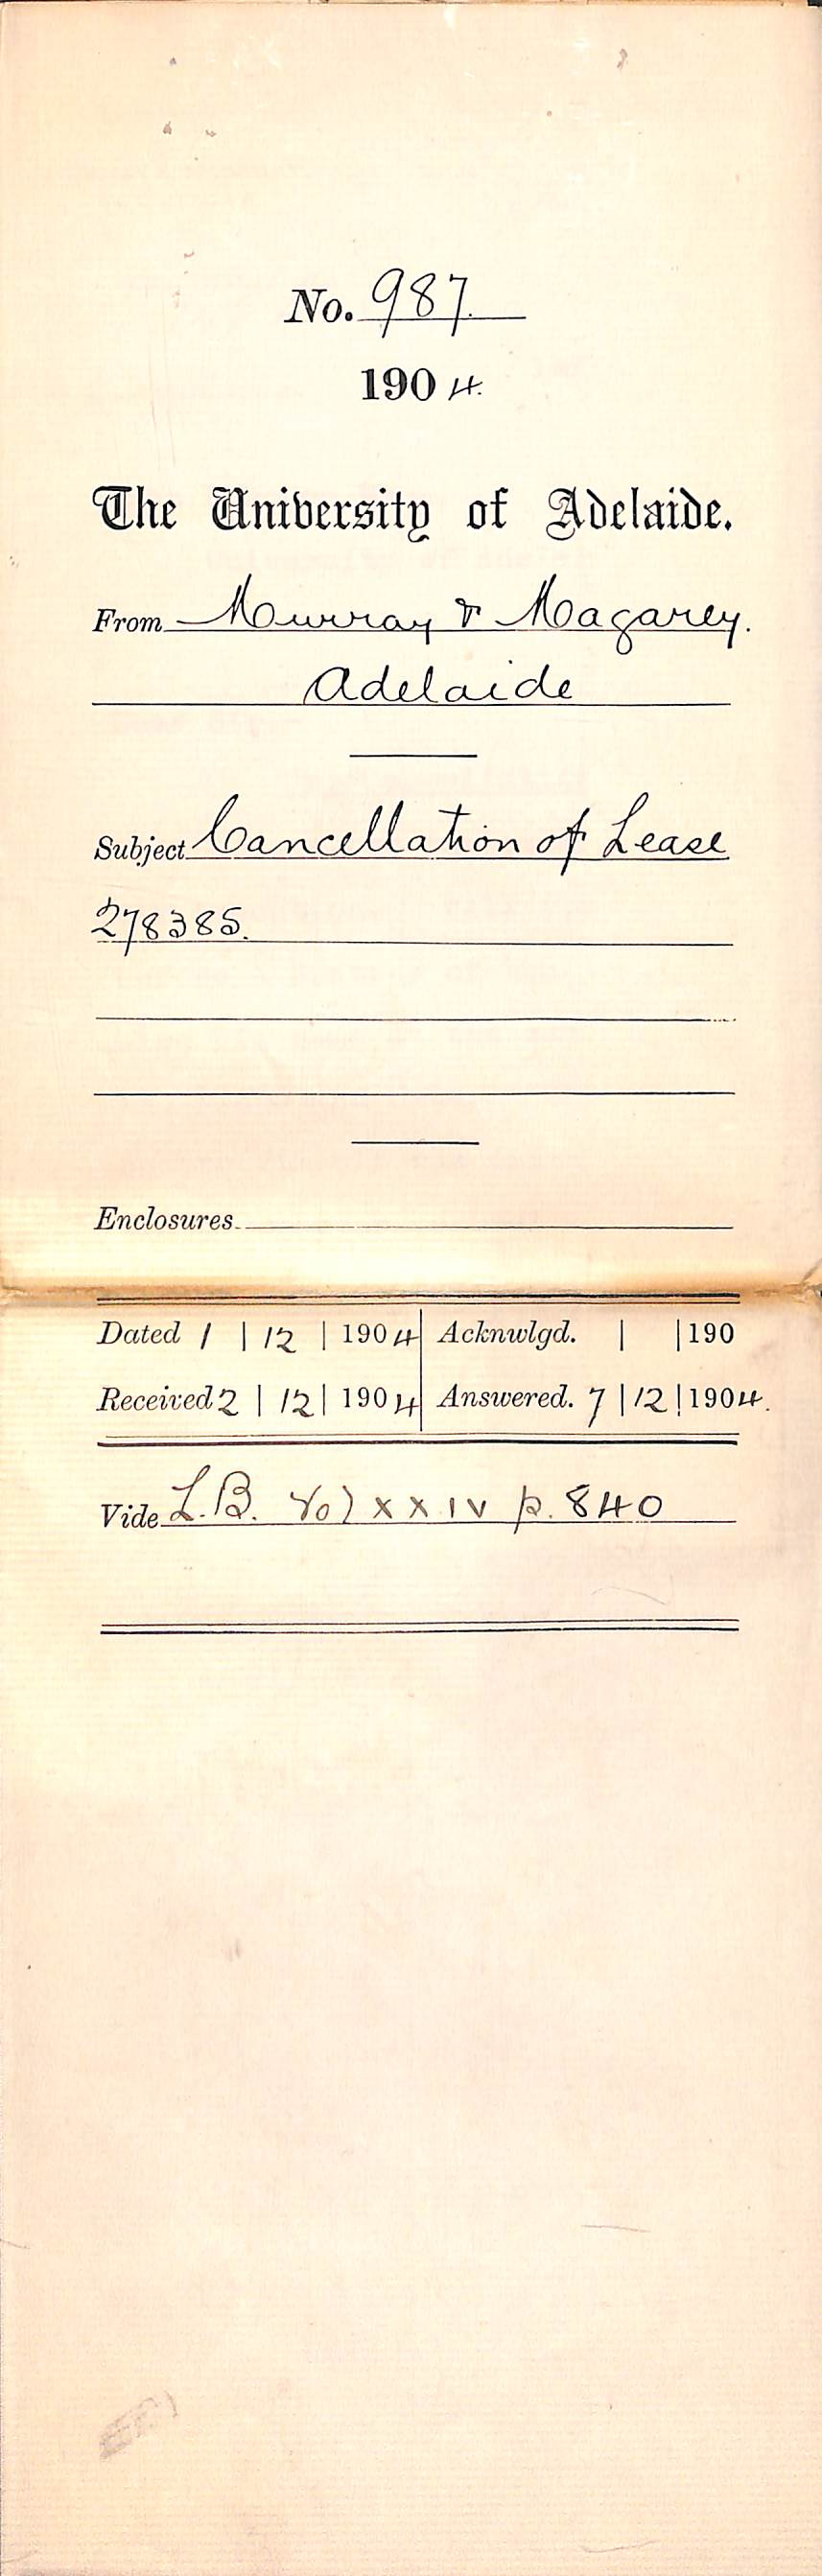 No. 987.
1904.
The University of Adelaide.
From Murray & Magarey.
Adelaide
Subject Cancellation of Lease
278385.
Enclosures.
Dated 1 | 12 | 1904 Acknwlgd. | | 190
Received 2 | 12 | 1904 Answered. 7 | 12 | 1904.
Vide L.B. Vol xxiv p. 840